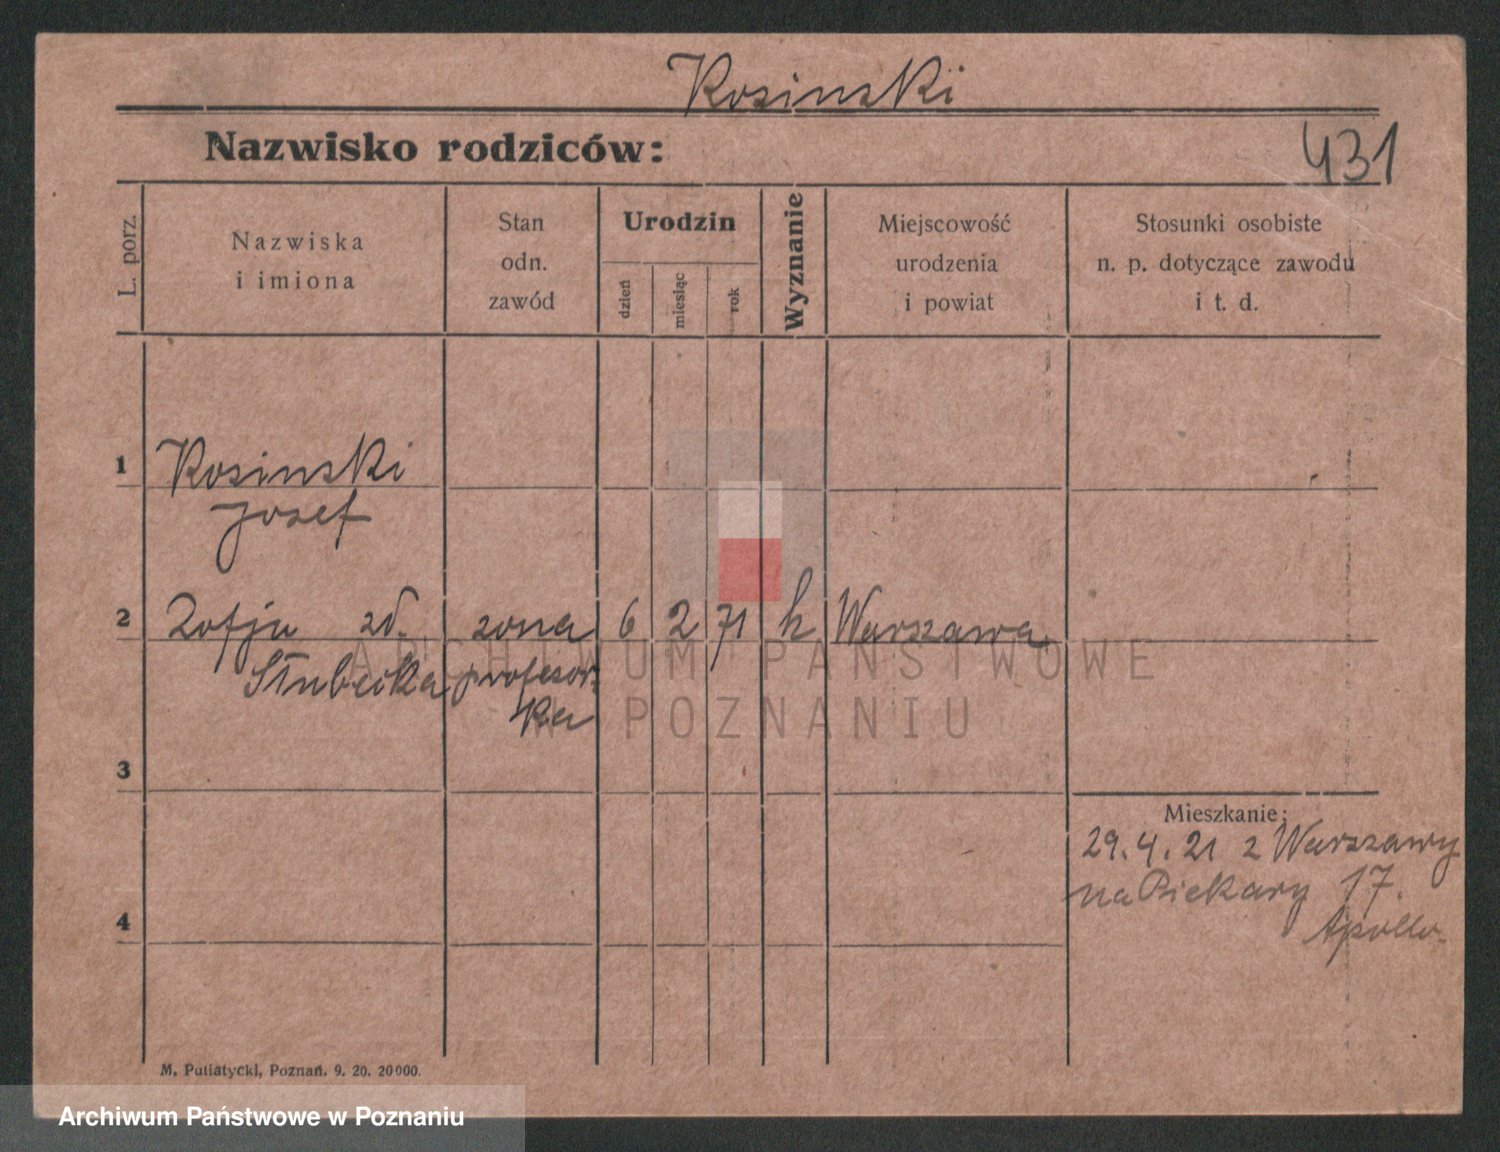 Kosinski
Nazwisko rodziców:
431
L. porz.
Nazwiska
i imiona
Stan
odn.
zawód
Urodzin
dzień
miesiąc
rok
Wyznanie
Miejscowość
urodzenia
i powiat
Stosunki osobiste
n. p. dotyczące zawodu
i t. d.
1 Kosinski
Josef
2 Zofju zd. zona 6 2 71 k Warszawa
Słubecka profesor-
ka
3
Mieszkanie:
29.4.21 z Warszawy
na Piekary 17.
Apollo.
4
M. Putiatycki, Poznań. 9. 20. 20000.
ARCHIWUM PAŃSTWOWE
W POZNANIU
Archiwum Państwowe w Poznaniu